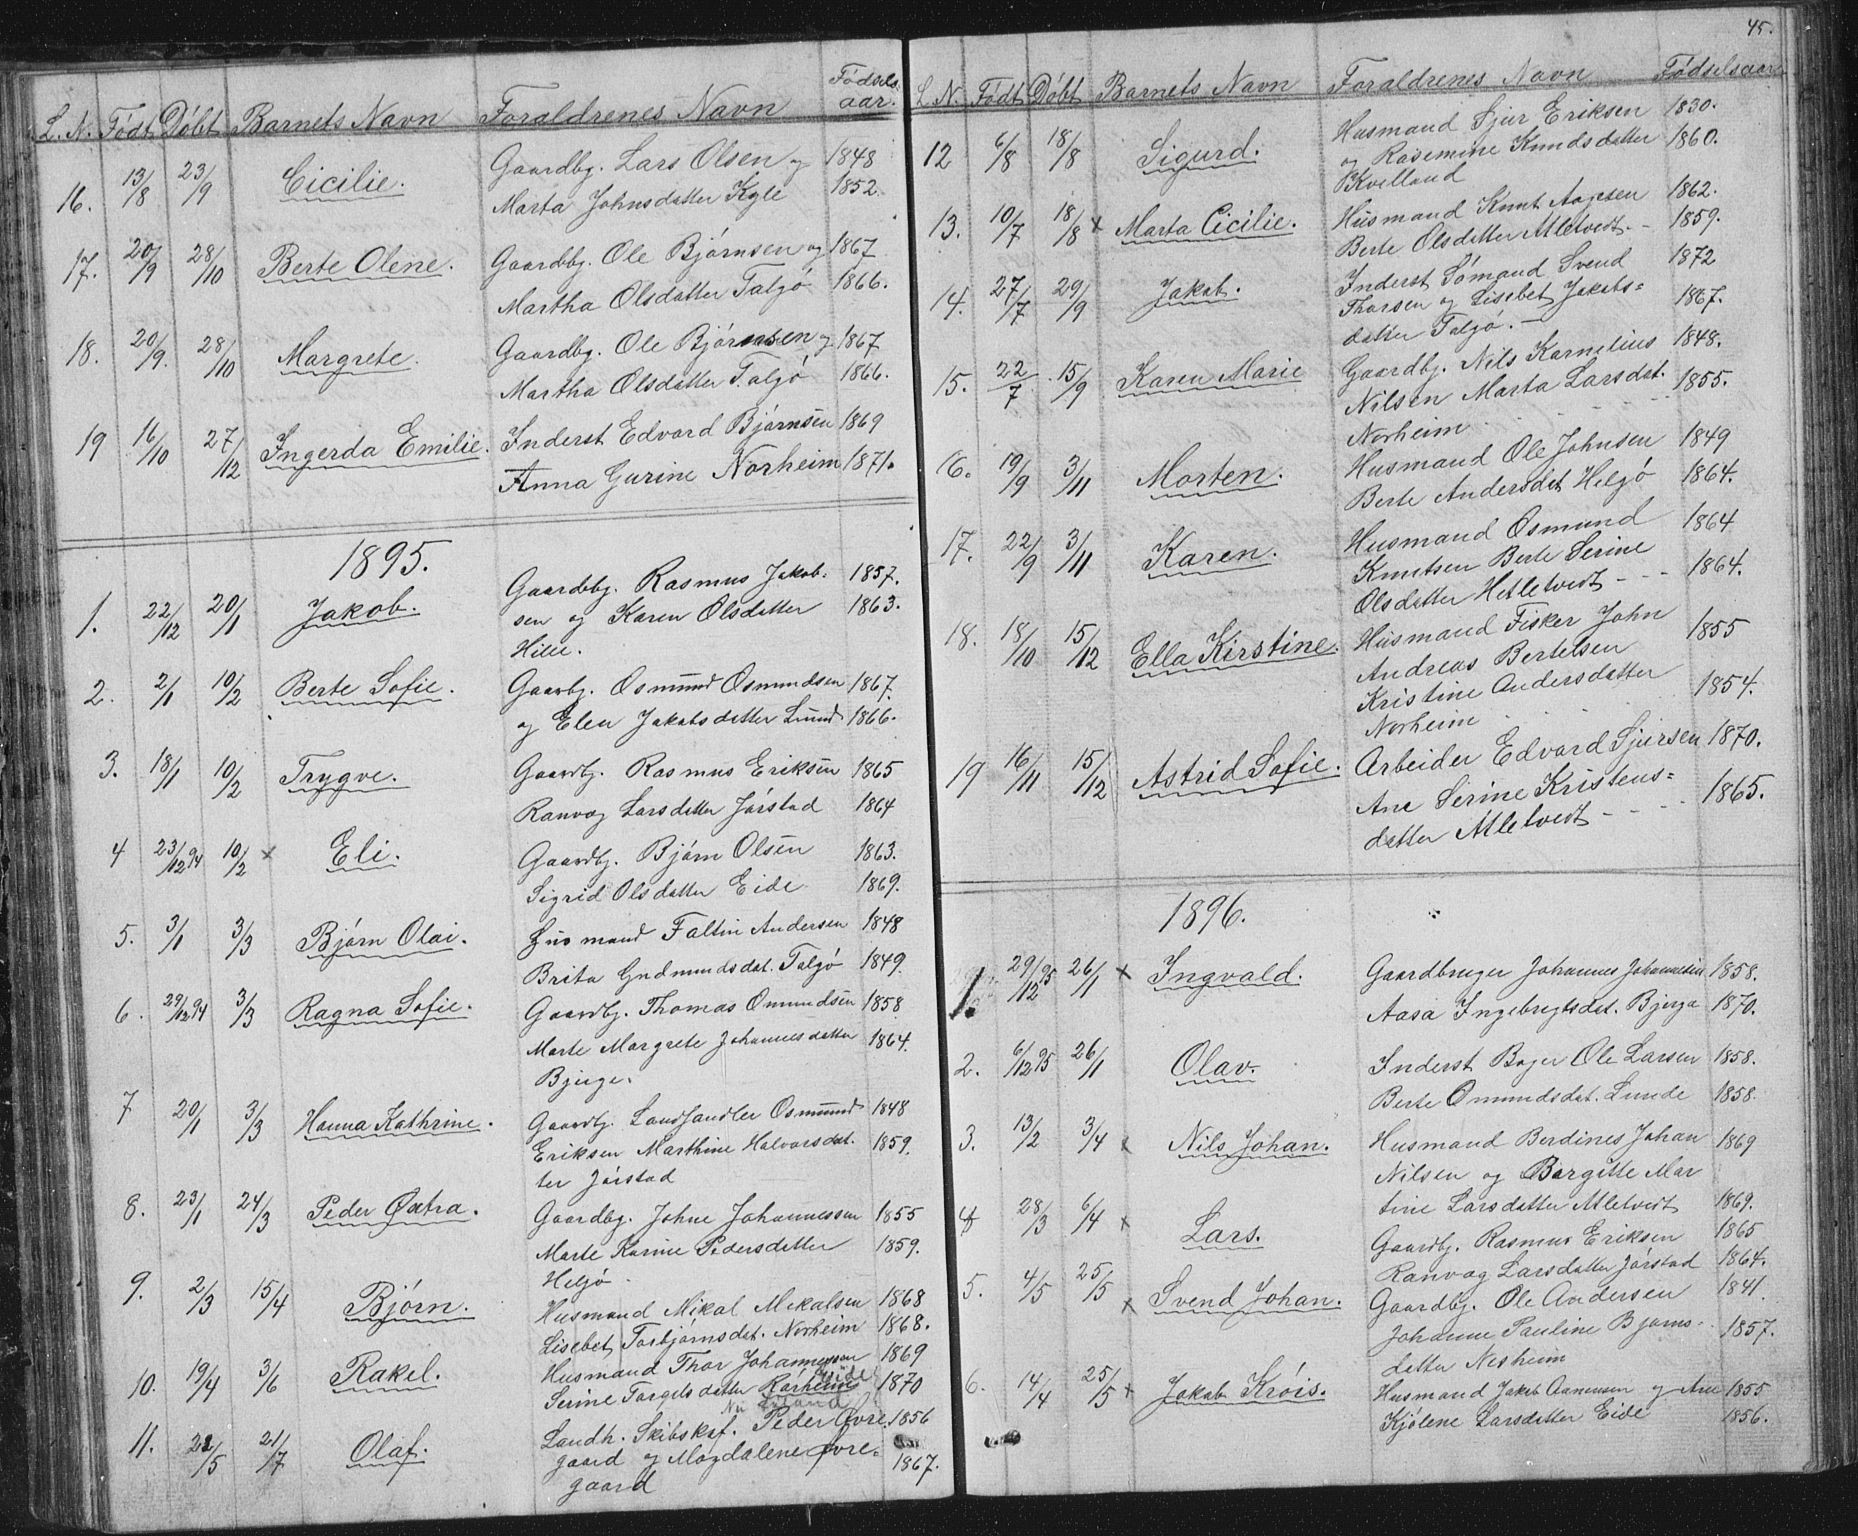 L. N. Født Døbt Barnets Navn Foraldrenes Navn Fødsels aar.
16. 13/8 23/9 Cicilie. Gaardbg. Lars Olsen og 1848
Marta Johnsdatter Kyle 1852
17. 20/9 28/10 Berte Olene. Gaardbg. Ole Bjørnsen og 1867
Martha Olsdatter Talgø 1866.
18. 20/9. 28/10 Margrete. Gaardbg. Ole Bjørnsen og 1867
Martha Olsdatter Talgø 1866.
19 16/10 27/12 Ingerda Emilie. Inderst Edvard Bjørnsen 1869
Anna Gurine Norheim 1871.
1895.
1. 22/12 20/1 Jakob. Gaardbg. Rasmus Jakob- 1857.
sen og Karen Olsdatter 1863.
Hille.
2. 2/1 10/2 Berte Sofie. Gaarbg. Osmund Osmundsen 1867
og Elen Jakobsdatter Lund 1866.
3. 18/1 10/2 Trygve. Gaardbg. Rasmus Eriksen 1865
Ranvog Larsdatter Jørstad 1864
4 23/12 94 10/2 x Eli. Gaardbg. Bjørn Olsen 1863.
Sigrid Olsdatter Eide 1869.
5. 3/1 3/3 Bjørn Olai. Husmand Faltin Andersen 1848
Brita Gudmundsdat. Talgø 1849.
6. 29/12 94 3/3 Ragna Sofie. Gaardbg. Thomas Omundsen 1858
Marte Margrete Johannesdatter 1864.
Bjerge.
7 20/1 3/3 Hanna Kathrine. Gaardbg. Landhandler Osmund 1848
Eriksen Marthine Halvorsdat- 1859.
ter Jørstad
8. 23/1 24/3 Peder Østra. Gaardbg. Johne Johannessen 1855
Marte Karine Pedersdatter 1859.
Helgø
9. 2/3 15/4 Bjørn. Husmand Mikal Mekalsen 1868
Lisebet Torbjørnsdat. Norheim 1868.
10. 19/4 3/6 Rakel. Husmand Thor Johannessen 1869
Serine Torgelsdatter Norheim Eide 1870
11. 22/5 21/7 Olaf. Landh. Skibskaf. Peder Øvre- 1856
gaard og Magdalene Øvre- 1867.
gaard
45.
L. N. Født Døbt Barnets Navn Foraldrenes Navn Fødselsaar
12 6/8 18/8 Sigurd. Husmand Sjur Eriksen 1830.
og Rasemine Knudsdatter 1860.
Kvilland
13. 10/7 18/8 x Marta Cicilie. Husmand Knut Aagesen 1862.
Berte Olsdatter Mletvedt. - 1859.
14. 27/7 29/9 Jakob. Inderst Sømand Svend 1872
Thorsen og Lisebet Jakobs= 1867.
datter Talgø. -
15. 22/7 15/9 Karen Marie Gaardbg. Nils Kornelius 1848.
Nilsen Marta Larsdat. 1855.
Norheim
16. 19/9 3/11 Morten. Husmand Ole Johnsen 1849
Berte Andersdat Helgø 1864.
17. 22/9 3/11 Karen. Husmand Osmund 1864
Knutsen Berte Serine
Olsdatter Hetletvedt - - - 1864.
18. 18/10 15/12 Ella Kirstine. Husmand Fisker John 1855
Andreas Bertelsen
Kristine Andersdatter 1854.
Norheim
19 16/11 15/12 Astrid Sofie. Arbeider Edvard Sjursen 1870.
Ane Serine Kristens= 1865.
datter Mletvedt - - -
1896.
1. 29/12 95 26/1 x Ingvald. Gaardbruger Johannes Johannesen 1858.
Aasa Ingebregtsdat. Bjerga 1870.
2. 6/12 95 26/1 Olav. Inderst Bager Ole Larsen 1858.
Berte Omundsdat. Lunde 1858.
3. 13/2 3/4 x Nils Johan. Husmand Berdines Johan 1869
Nilsen og Bargitte Mar
tine Larsdatter Mletvedt 1869.
4 28/3 6/4 x Lars. Gaardbg. Rasmus Eriksen 1865
Ranvog Larsdatter Jørstad 1864.
5. 4/5 25/5 x Svend Johan. Gaardbg. Ole Andersen 1841.
Johanne Pauline Bjørns- 1857.
datter Nesheim
6. 14/4 25/5 x Jakob Krøis. Husmand Jakob Aanensen og Ane 1855
Kjølene Larsdatter Eide 1856.